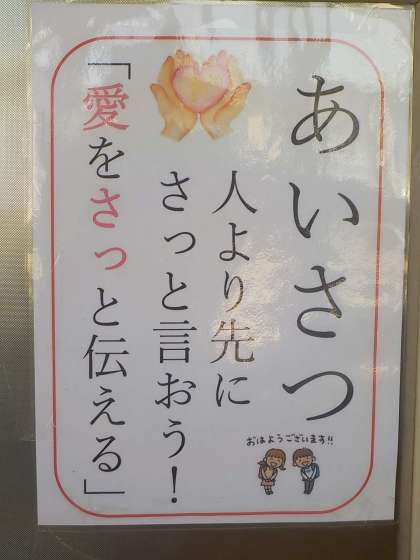 あいさつ
人より先に
さっと言おう！
「愛をさっと伝える」
おはようございます!!